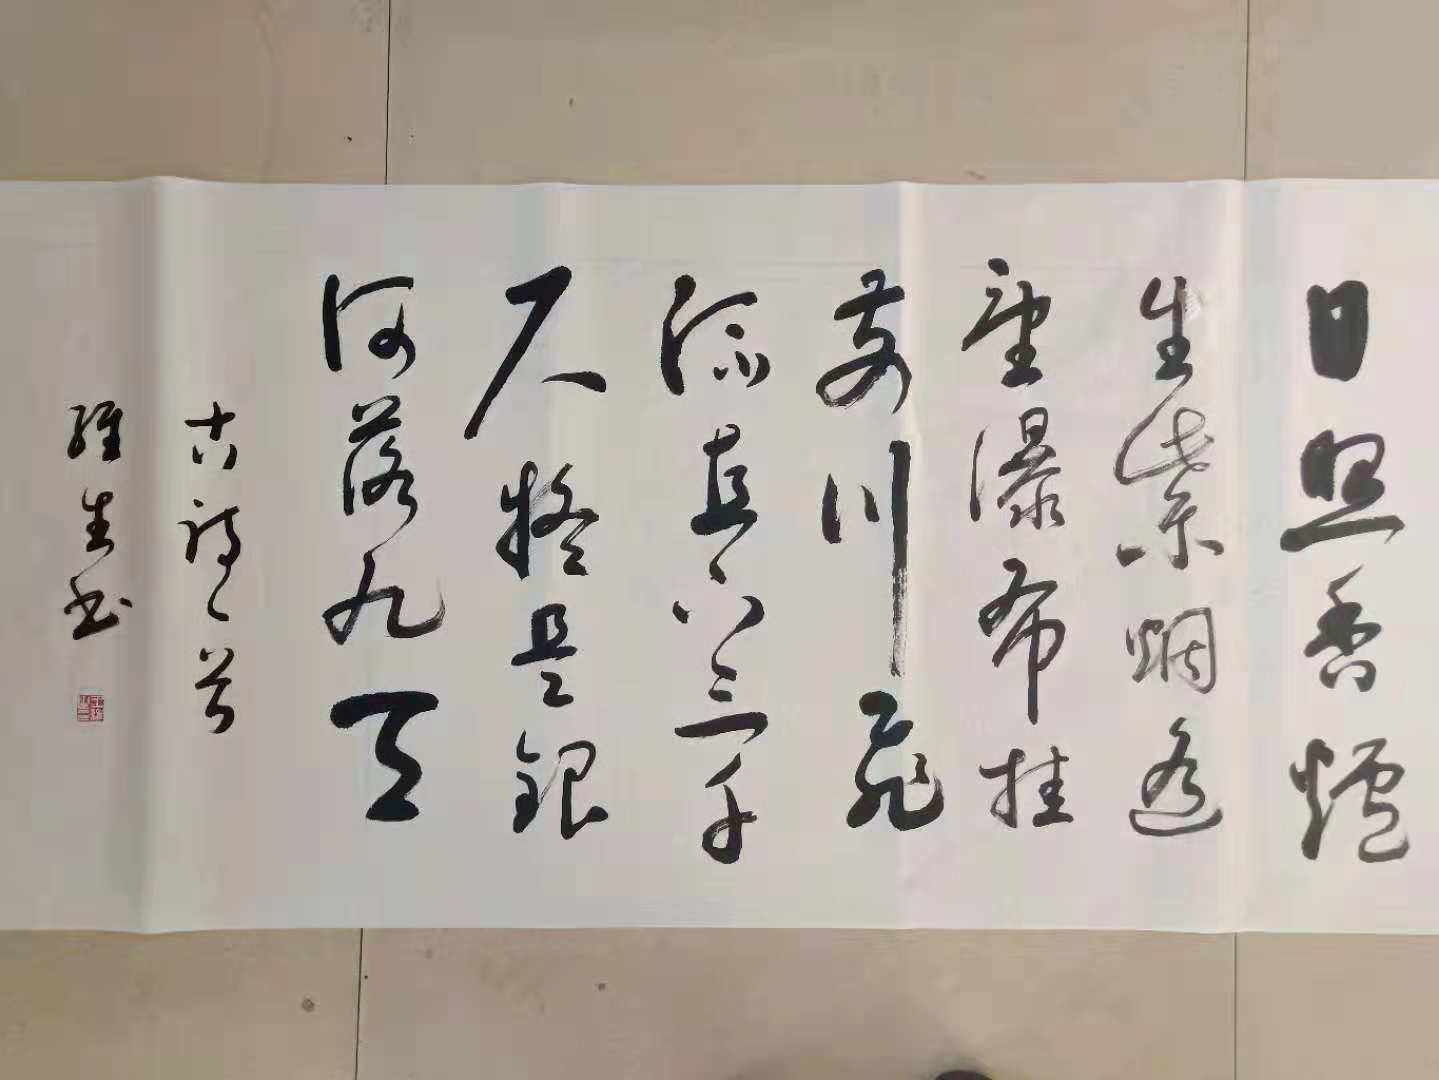 日照香爐
生紫烟遥
望瀑布挂
前川飛
流直下三千
尺疑是銀
河落九天
古詩一首
維生书